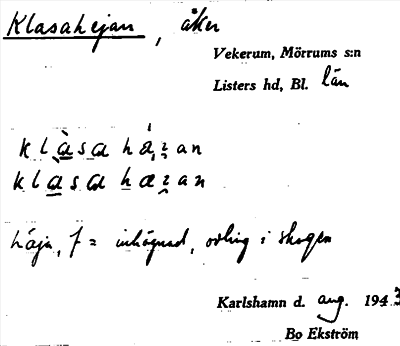 Klasahejan, åker
Vekerum, Mörrums s:n
Listers hd, Bl. län
klàsa há,ʒan
klàsa hæʒan
häja, f = inhägnad, odling i skogen
Karlshamn d. aug. 1943
Bo Ekström